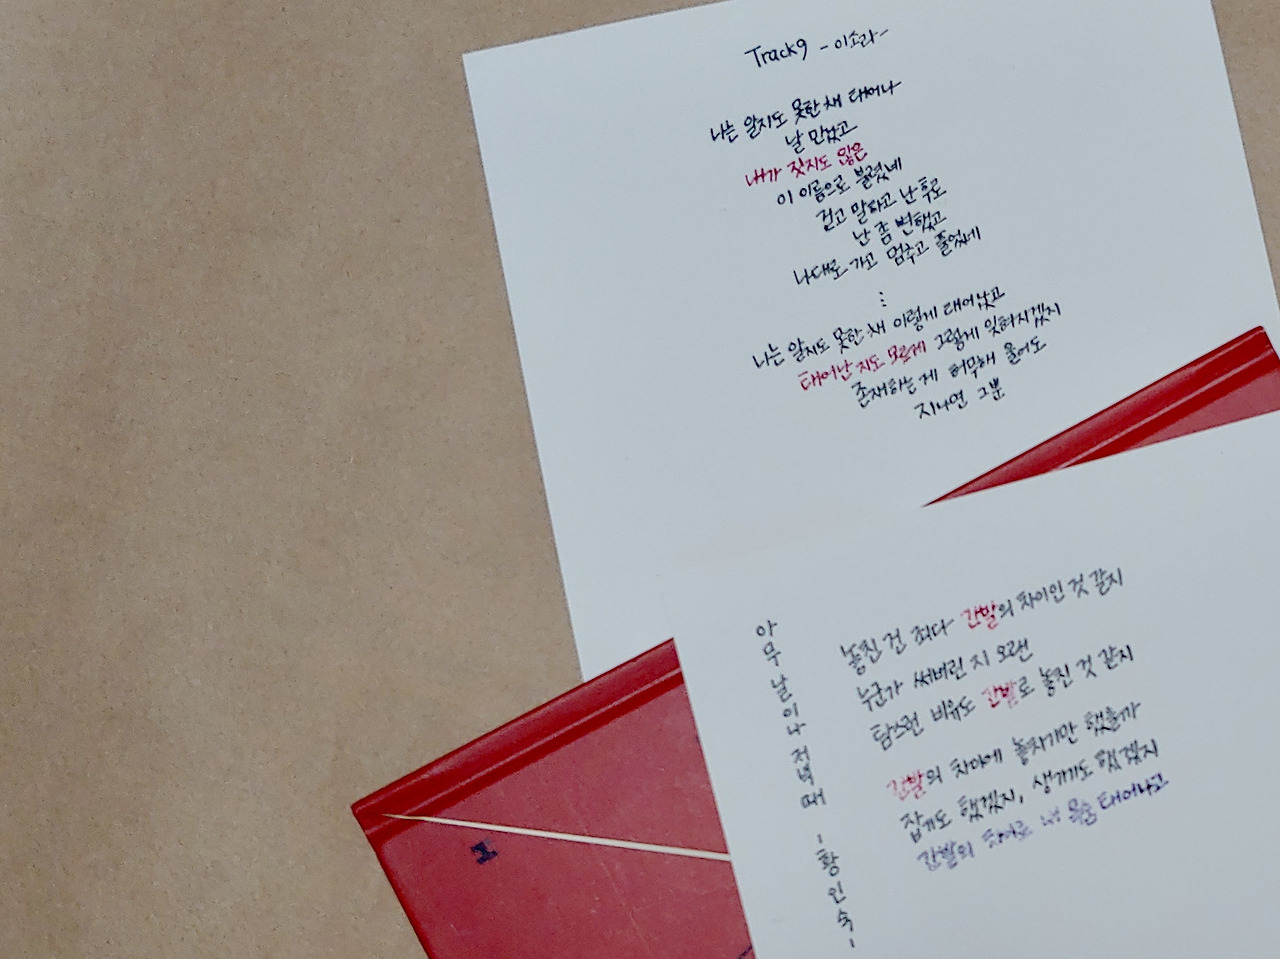 Track9 - 이소라-
나는 알지도 못한 채 태어나
날 만났고
내가 짓지도 않은
이 이름으로 불렸네
걷고 말하고 난 후로
난 좀 변했고
나대로 가고 멈추고 풀었네
⋮
나는 알지도 못한 채 이렇게 태어났고
태어난 지도 모르게 그렇게 잊혀지겠지
존재하는 게 허무해 울어도
지나면 그뿐
아무 날이나 저녁때 - 황인숙 -
놓친 건 죄다 간발의 차이인 것 같지
누군가 써버린 지 오랜
탐스런 비유도 간발로 놓친 것 같지
간발의 차이에 놓치기만 했을까
잡기도 했겠지, 생기기도 했겠지
간발의 차이로 내 목숨 태어나고
1